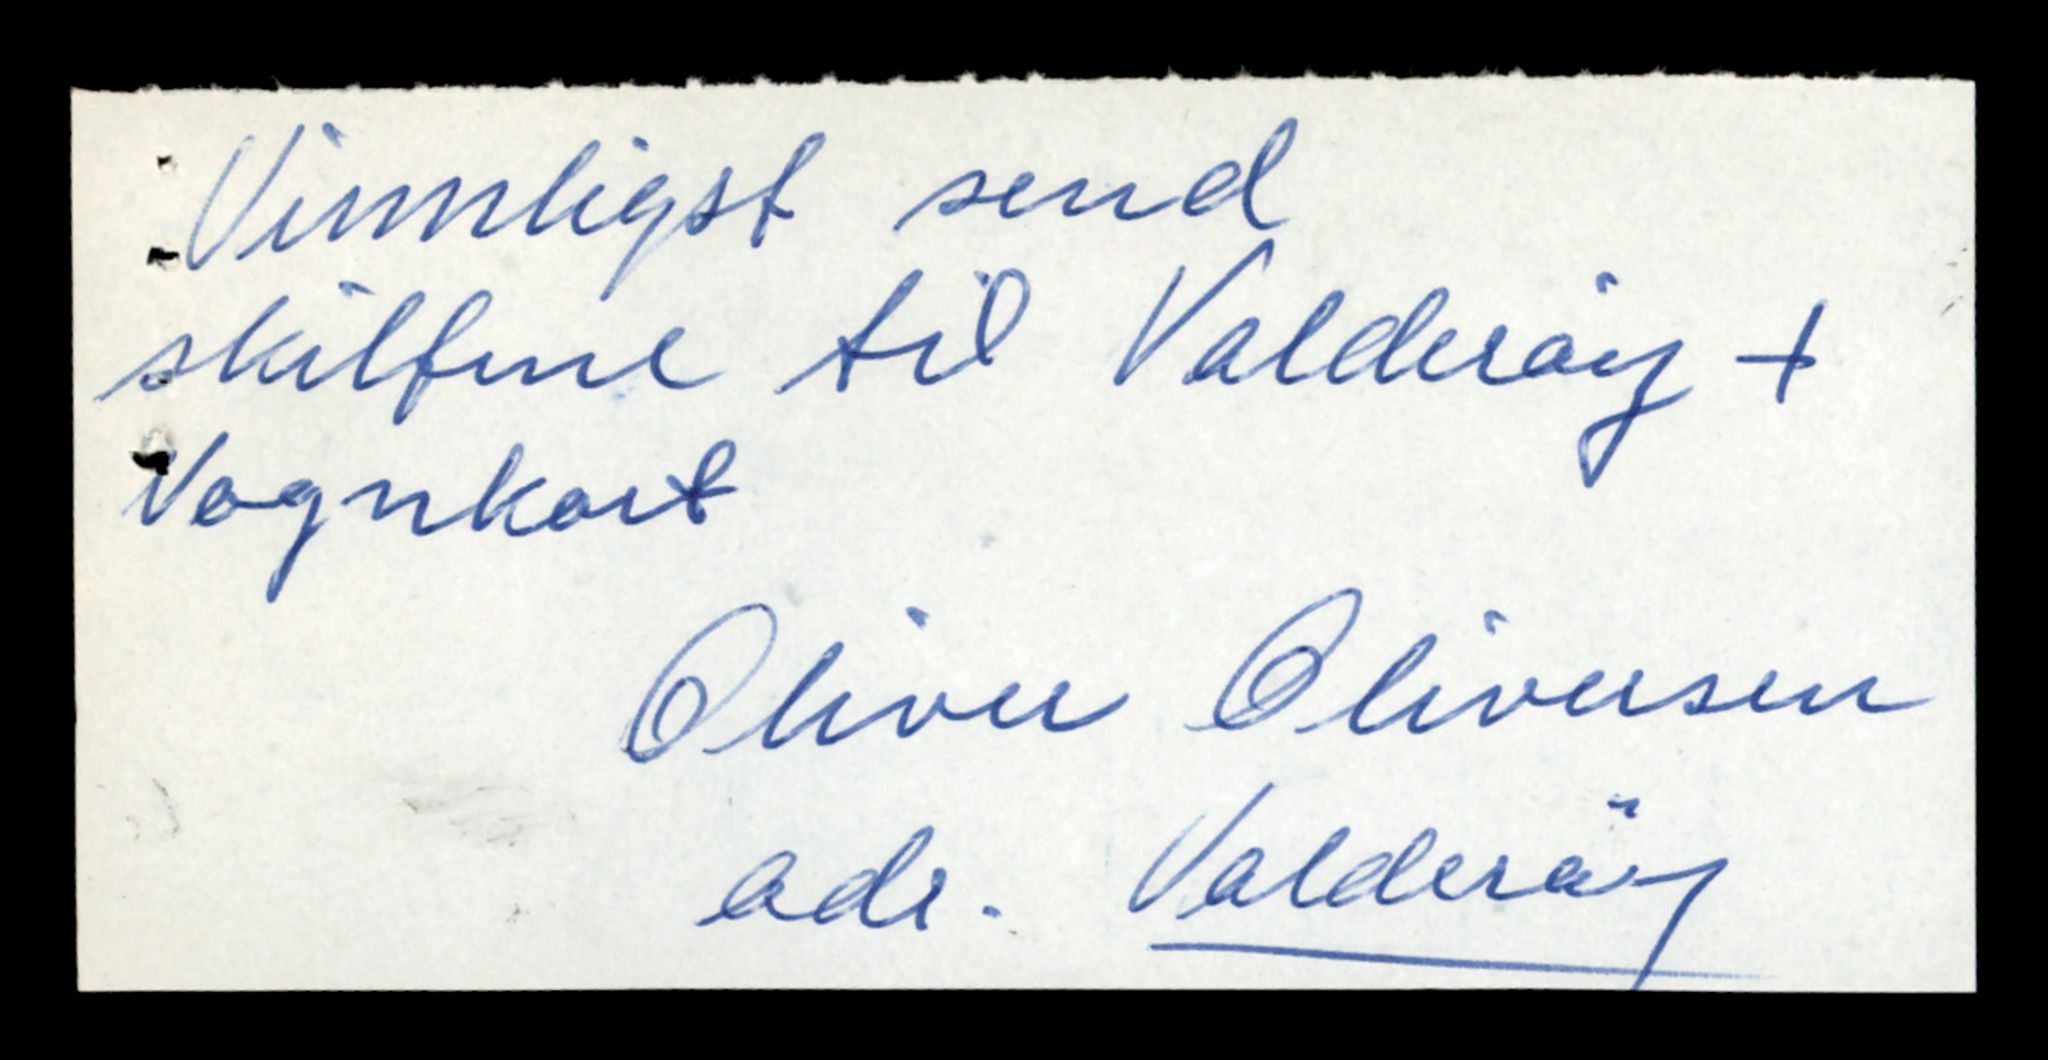 Vinnligst send
skiltene til Valderöy +
Vognkort
Oliver Oliversen
adr. Valderöy